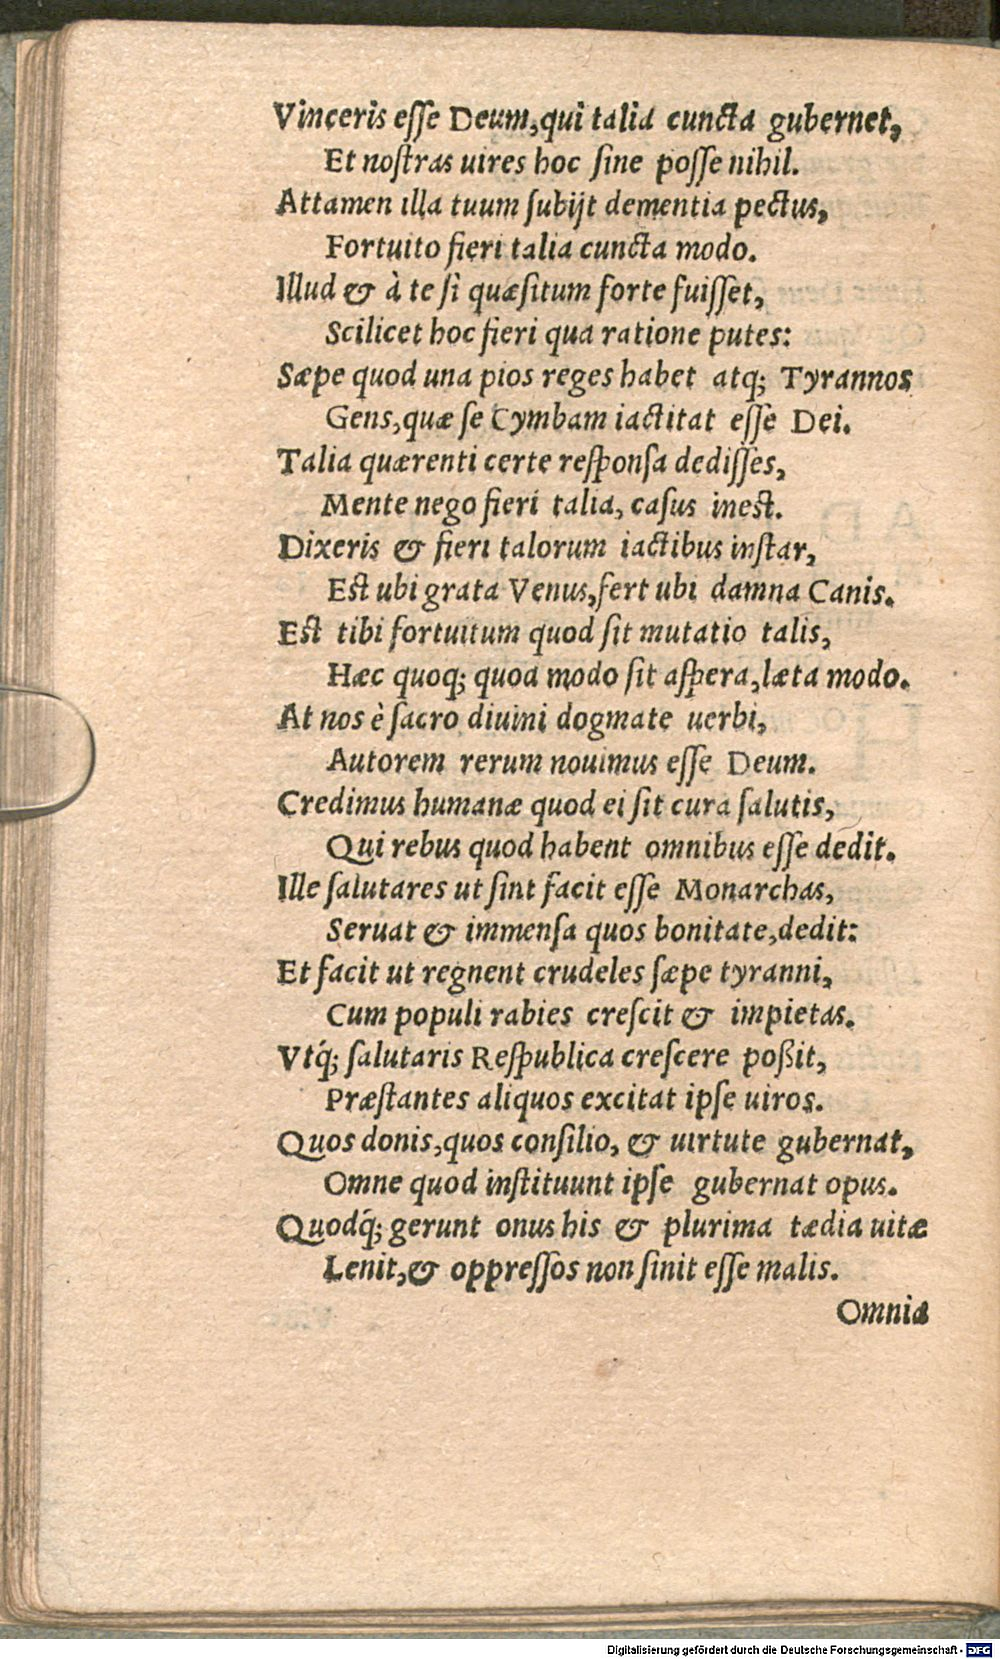 Vinceris eſſe Deum,qui talia cuncta gubernet,
Et noſtras uires hoc ſine poſſe nihil.
Attamen illa tuum ſubijt dementia pectus,
Fortuito fieri talia cuncta modo.
Illud & à te ſi quæſitum forte fuiſſet,
Scilicet hoc fieri qua ratione putes:
Sæpe quod una pios reges habet atq; Tyrannos
Gens,quæ ſe Cymbam iactitat eſſe Dei.
Talia quærenti certe reſponſa dediſſes,
Mente nego fieri talia, caſus ineſt.
Dixeris & fieri talorum iactibus inſtar,
Eſt ubi grata Venus,fert ubi damna Canis.
Eſt tibi fortuitum quod ſit mutatio talis,
Hæc quoq; quoa modo ſit aſpera,læta modo.
At nos è ſacro diuini dogmate uerbi,
Autorem rerum nouimus eſſe Deum.
Credimus humanæ quod ei ſit cura ſalutis,
Qui rebus quod habent omnibus eſſe dedit.
Ille ſalutares ut ſint facit eſſe Monarchas,
Seruat & immenſa quos bonitate,dedit:
Et facit ut regnent crudeles ſæpe tyranni,
Cum populi rabies creſcit & impietas.
Vtq́; ſalutaris Reſpublica creſcere poßit,
Præſtantes aliquos excitat ipſe uiros.
Quos donis,quos conſilio, & uirtute gubernat,
Omne quod inſtituunt ipſe gubernat opus.
Quodq́; gerunt onus his & plurima tædia uitæ
Lenit,& oppreſſos non ſinit eſſe malis.
Omnia
Digitalisierung gefördert durch die Deutsche Forschungsgemeinschaft - DFG